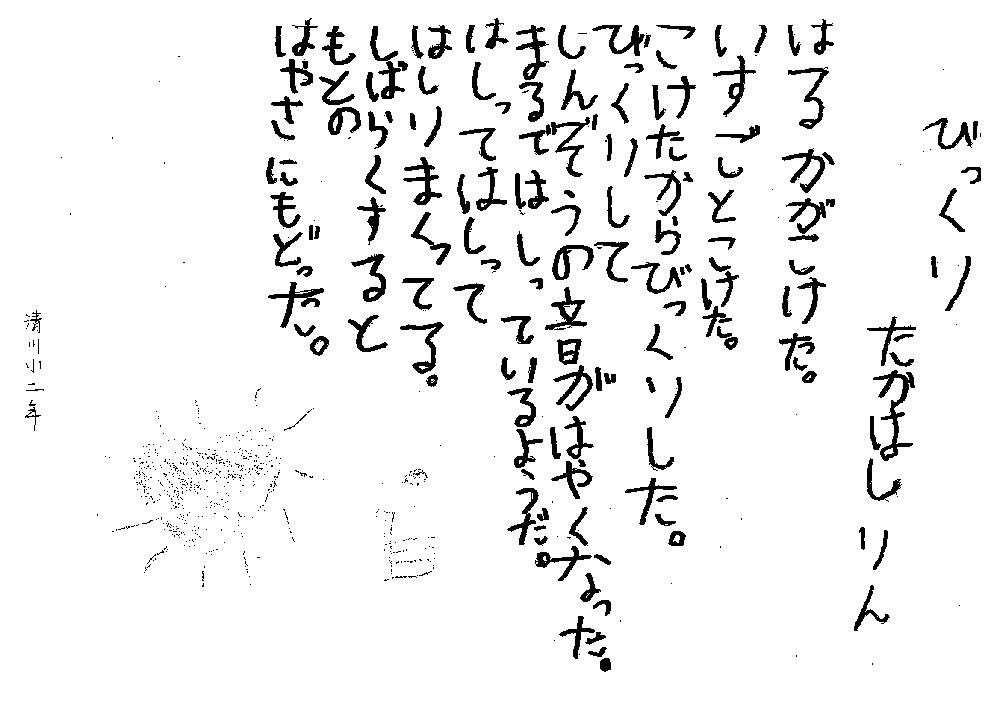 びっくり
たかはしりん
はるかがこけた。
いすごとこけた。
こけたからびっくりした。
びっくりして
しんぞうの音がはやくなった。
まるではしっているようだ。
はしってはしって
はしりまくってる。
しばらくすると
もとの
はやさにもどった。
清川小二年